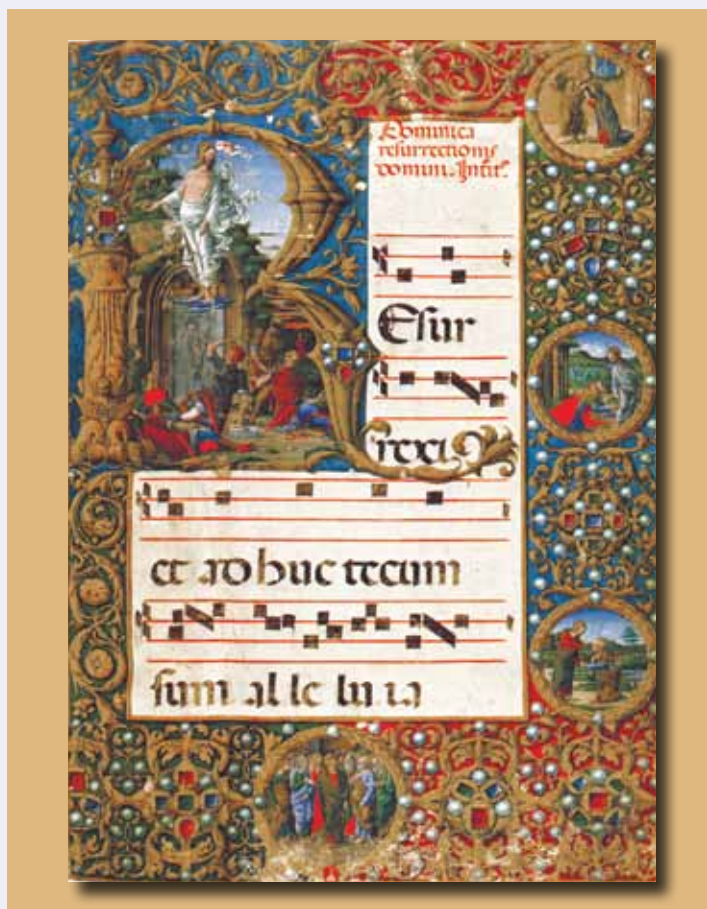 Dominica
resurrectionis
domini. Introit.
REsur
rexi
et adhuc tecum
sum al le lu ia